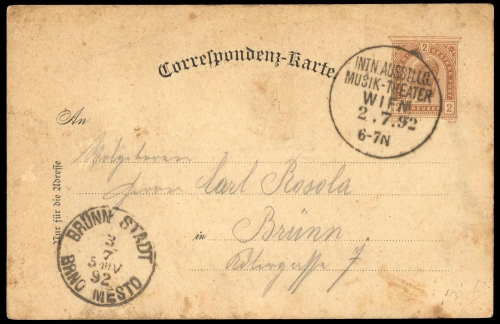 Correspondenz-Karte
2
2
INTN. AUSSTELLG.
MUSIK-THEATER
WIEN
2.7.92
6-7N
An
Wolgeboren
Herrn Carl Rosola
in Brünn
Adlergasse 7
Nur für die Adresse
BRÜNN STADT
3
7
92
BRNO MĚSTO